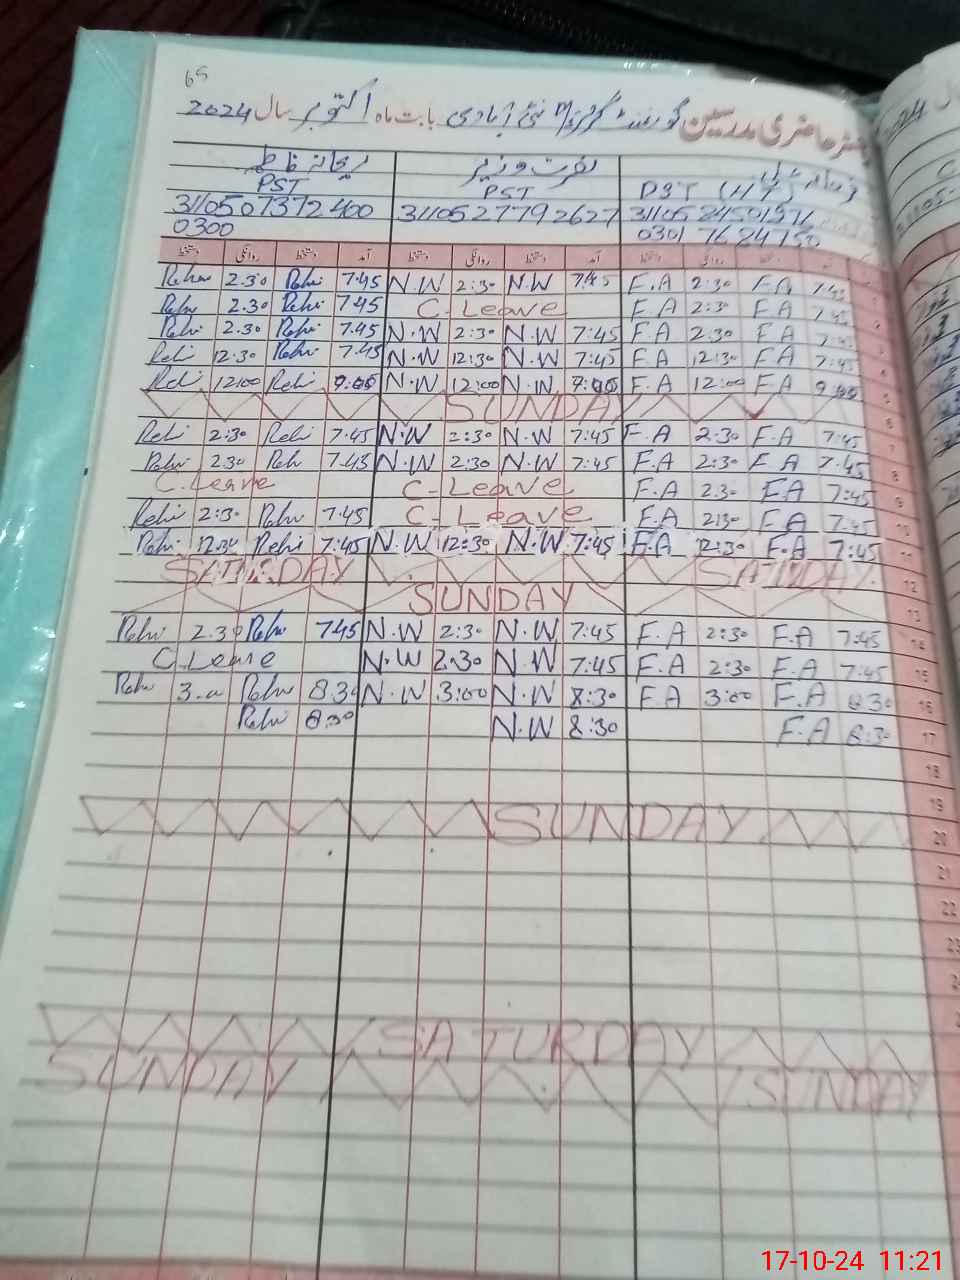 65
حاضری مدرسین گورنمنٹ گرلز نئی آبادی بابت ماہ اکتوبر سال 2024
ریحانہ فاطمہ نصرت وزیر
PST PST PST
3110507372400 3110527792627
0300
دستخط روانگی دستخط آمد دستخط روانگی دستخط آمد دستخط روانگی دستخط
Rehi 2.30 Rehi 7.45 N.W 2:30 N.W 7:45 F.A 2:30 F.A 7:45
Rehi 2.30 Rehi 7.45 C. Leave F.A 2:30 F.A 7:45
Rehi 2.30 Rehi 7.45 N.W 2:30 N.W 7:45 F.A 2.30 F.A 7:45
Rehi 12:30 Rehi 7.45 N.W 12:30 N.W 7:45 F.A 12:30 F.A 7:45 4
Rehi 12:00 Rehi 9:00 N.W 12:00 N.W 9:00 F.A 12:00 F.A 9:00 5
SUNDAY 6
Rehi 2:30 Rehi 7.45 N.W 2:30 N.W 7:45 F.A 2:30 F.A 7:45 7
Rehi 2.30 Rehi 7.45 N.W 2:30 N.W 7:45 F.A 2:30 F.A 7.45 8
C. Leave C-Leave F.A 2.30 F.A 7:45 9
Rehi 2:30 Rehi 7.45 C-Leave F.A 2:30 F.A 7:45 10
Rehi 12.30 Rehi 7:45 N.W 12:30 N.W 7:45 F.A 12:30 F.A 7:45 11
SATURDAY SATURDAY 12
SUNDAY 13
Rehi 2.30 Rehi 745 N.W 2:30 N.W 7:45 F.A 2:30 F.A 7:45 14
C. Leave N.W 2:30 N.W 7:45 F.A 2:30 F.A 7:45 15
Rehi 3.00 Rehi 8.30 N.W 3:00 N.W 8:30 F.A 3:00 F.A 8:30 16
Rehi 8:30 N.W 8:30 F.A 8:30 17
18
19
SUNDAY 20
21
22
23
SATURDAY
SUNDAY SUNDAY
17-10-24 11:21